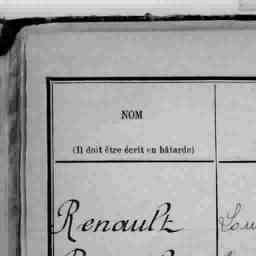 NOM
(Il doit être écrit en bâtarde)
Renault